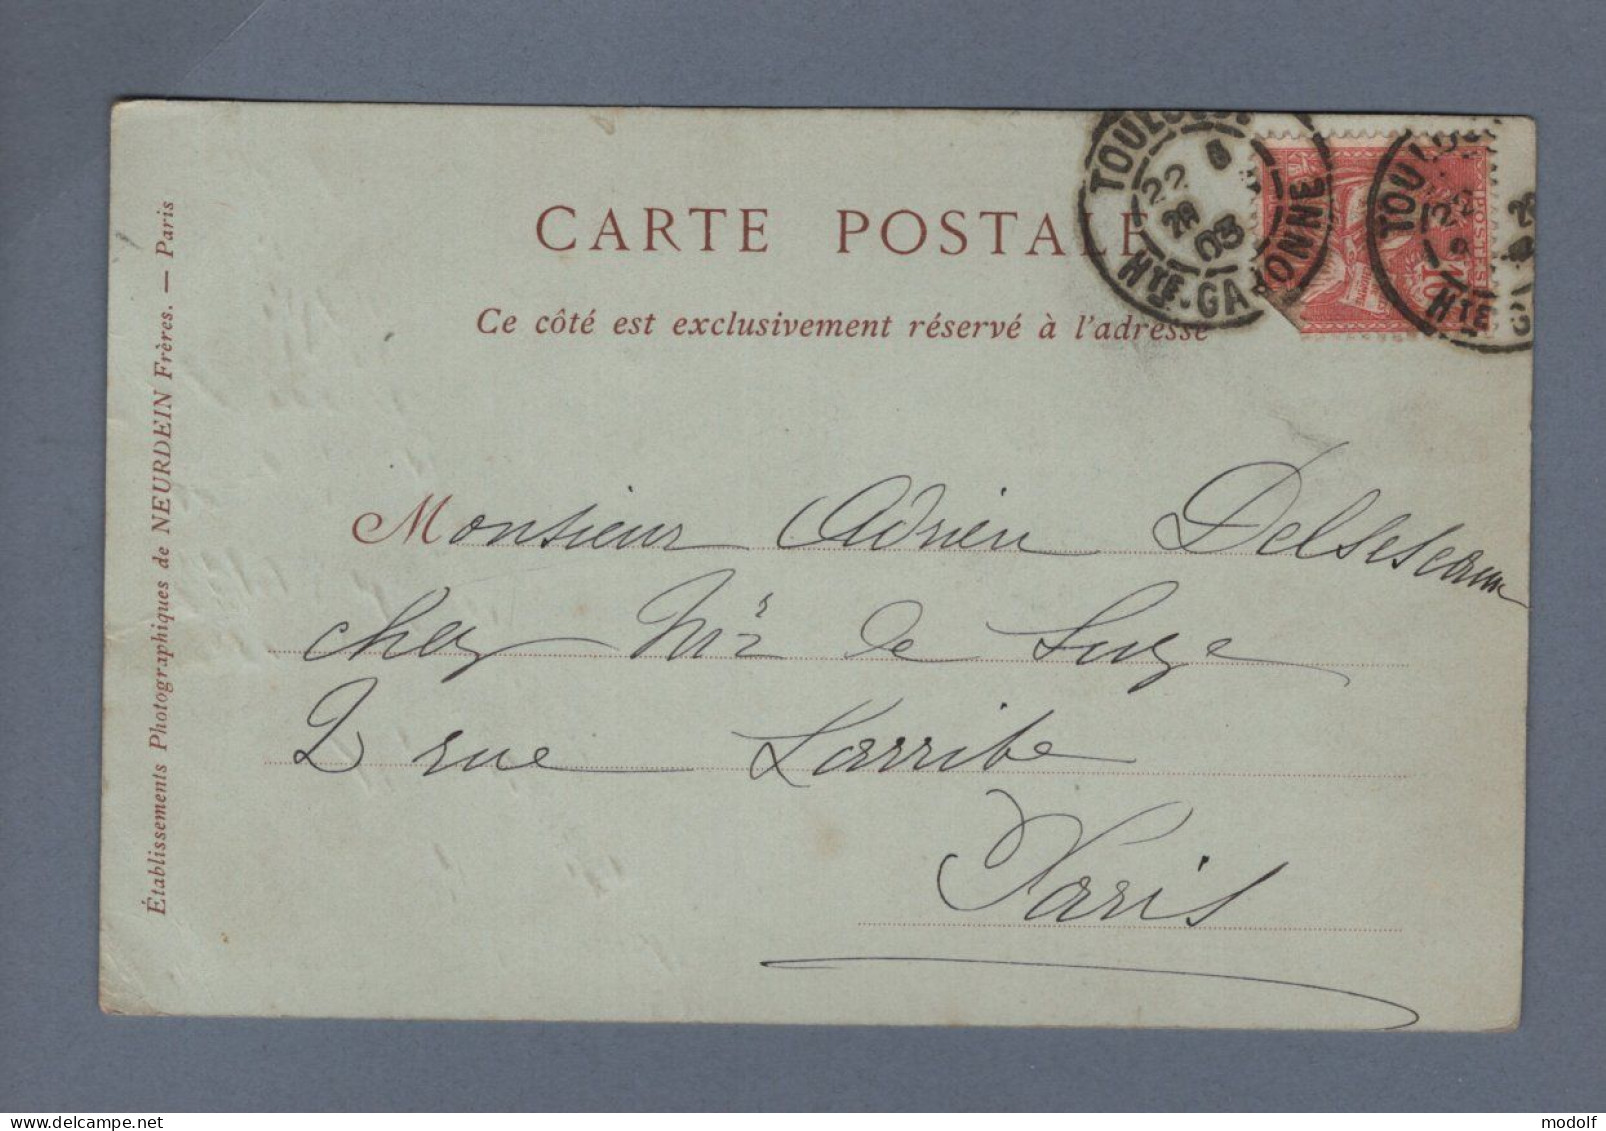 CARTE POSTALE
Ce côté est exclusivement réservé à l'adresse
TOULOUSE
22
28 03
HTE-GARONNE
POSTES
10
TOULOUSE
22
HTE
Monsieur Adrien
chez Mr de Luze
2 rue Larribe
Paris
Établissements Photographiques de NEURDEIN Frères. — Paris
modolf